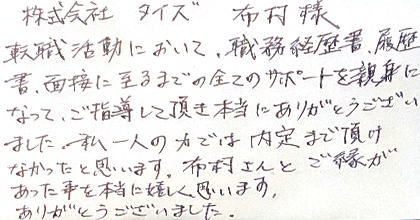 株式会社 タイズ 布村様
転職活動において、職務経歴書、履歴
書、面接に至るまでの全てのサポートを親身に
なって、ご指導して頂き本当にありがとうござい
ました。私一人の力では内定まで頂け
なかったと思います。布村さんとご縁が
あった事を本当に嬉しく思います。
ありがとうございました。